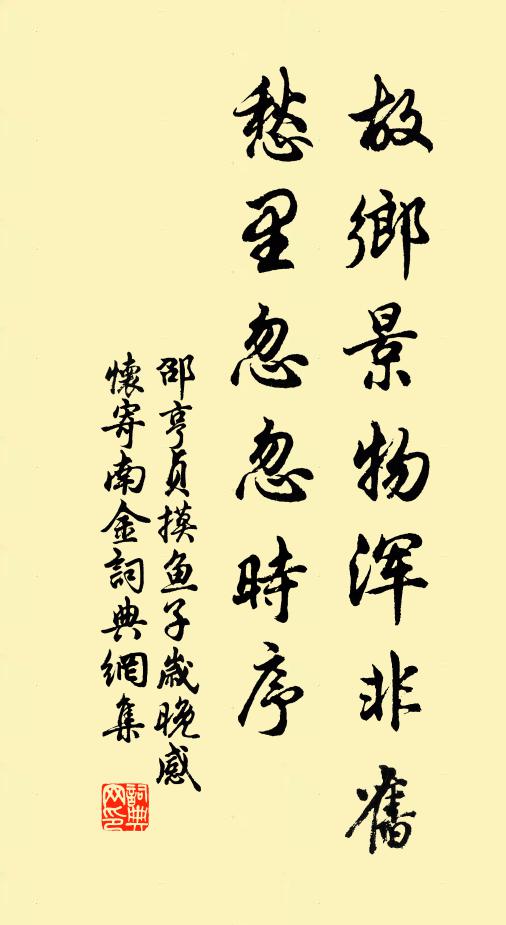 故鄉景物渾非舊
愁里忽忽時序
邵亨貞摸鱼子歲晚感
懷寄南金詞典網集
詞典网印